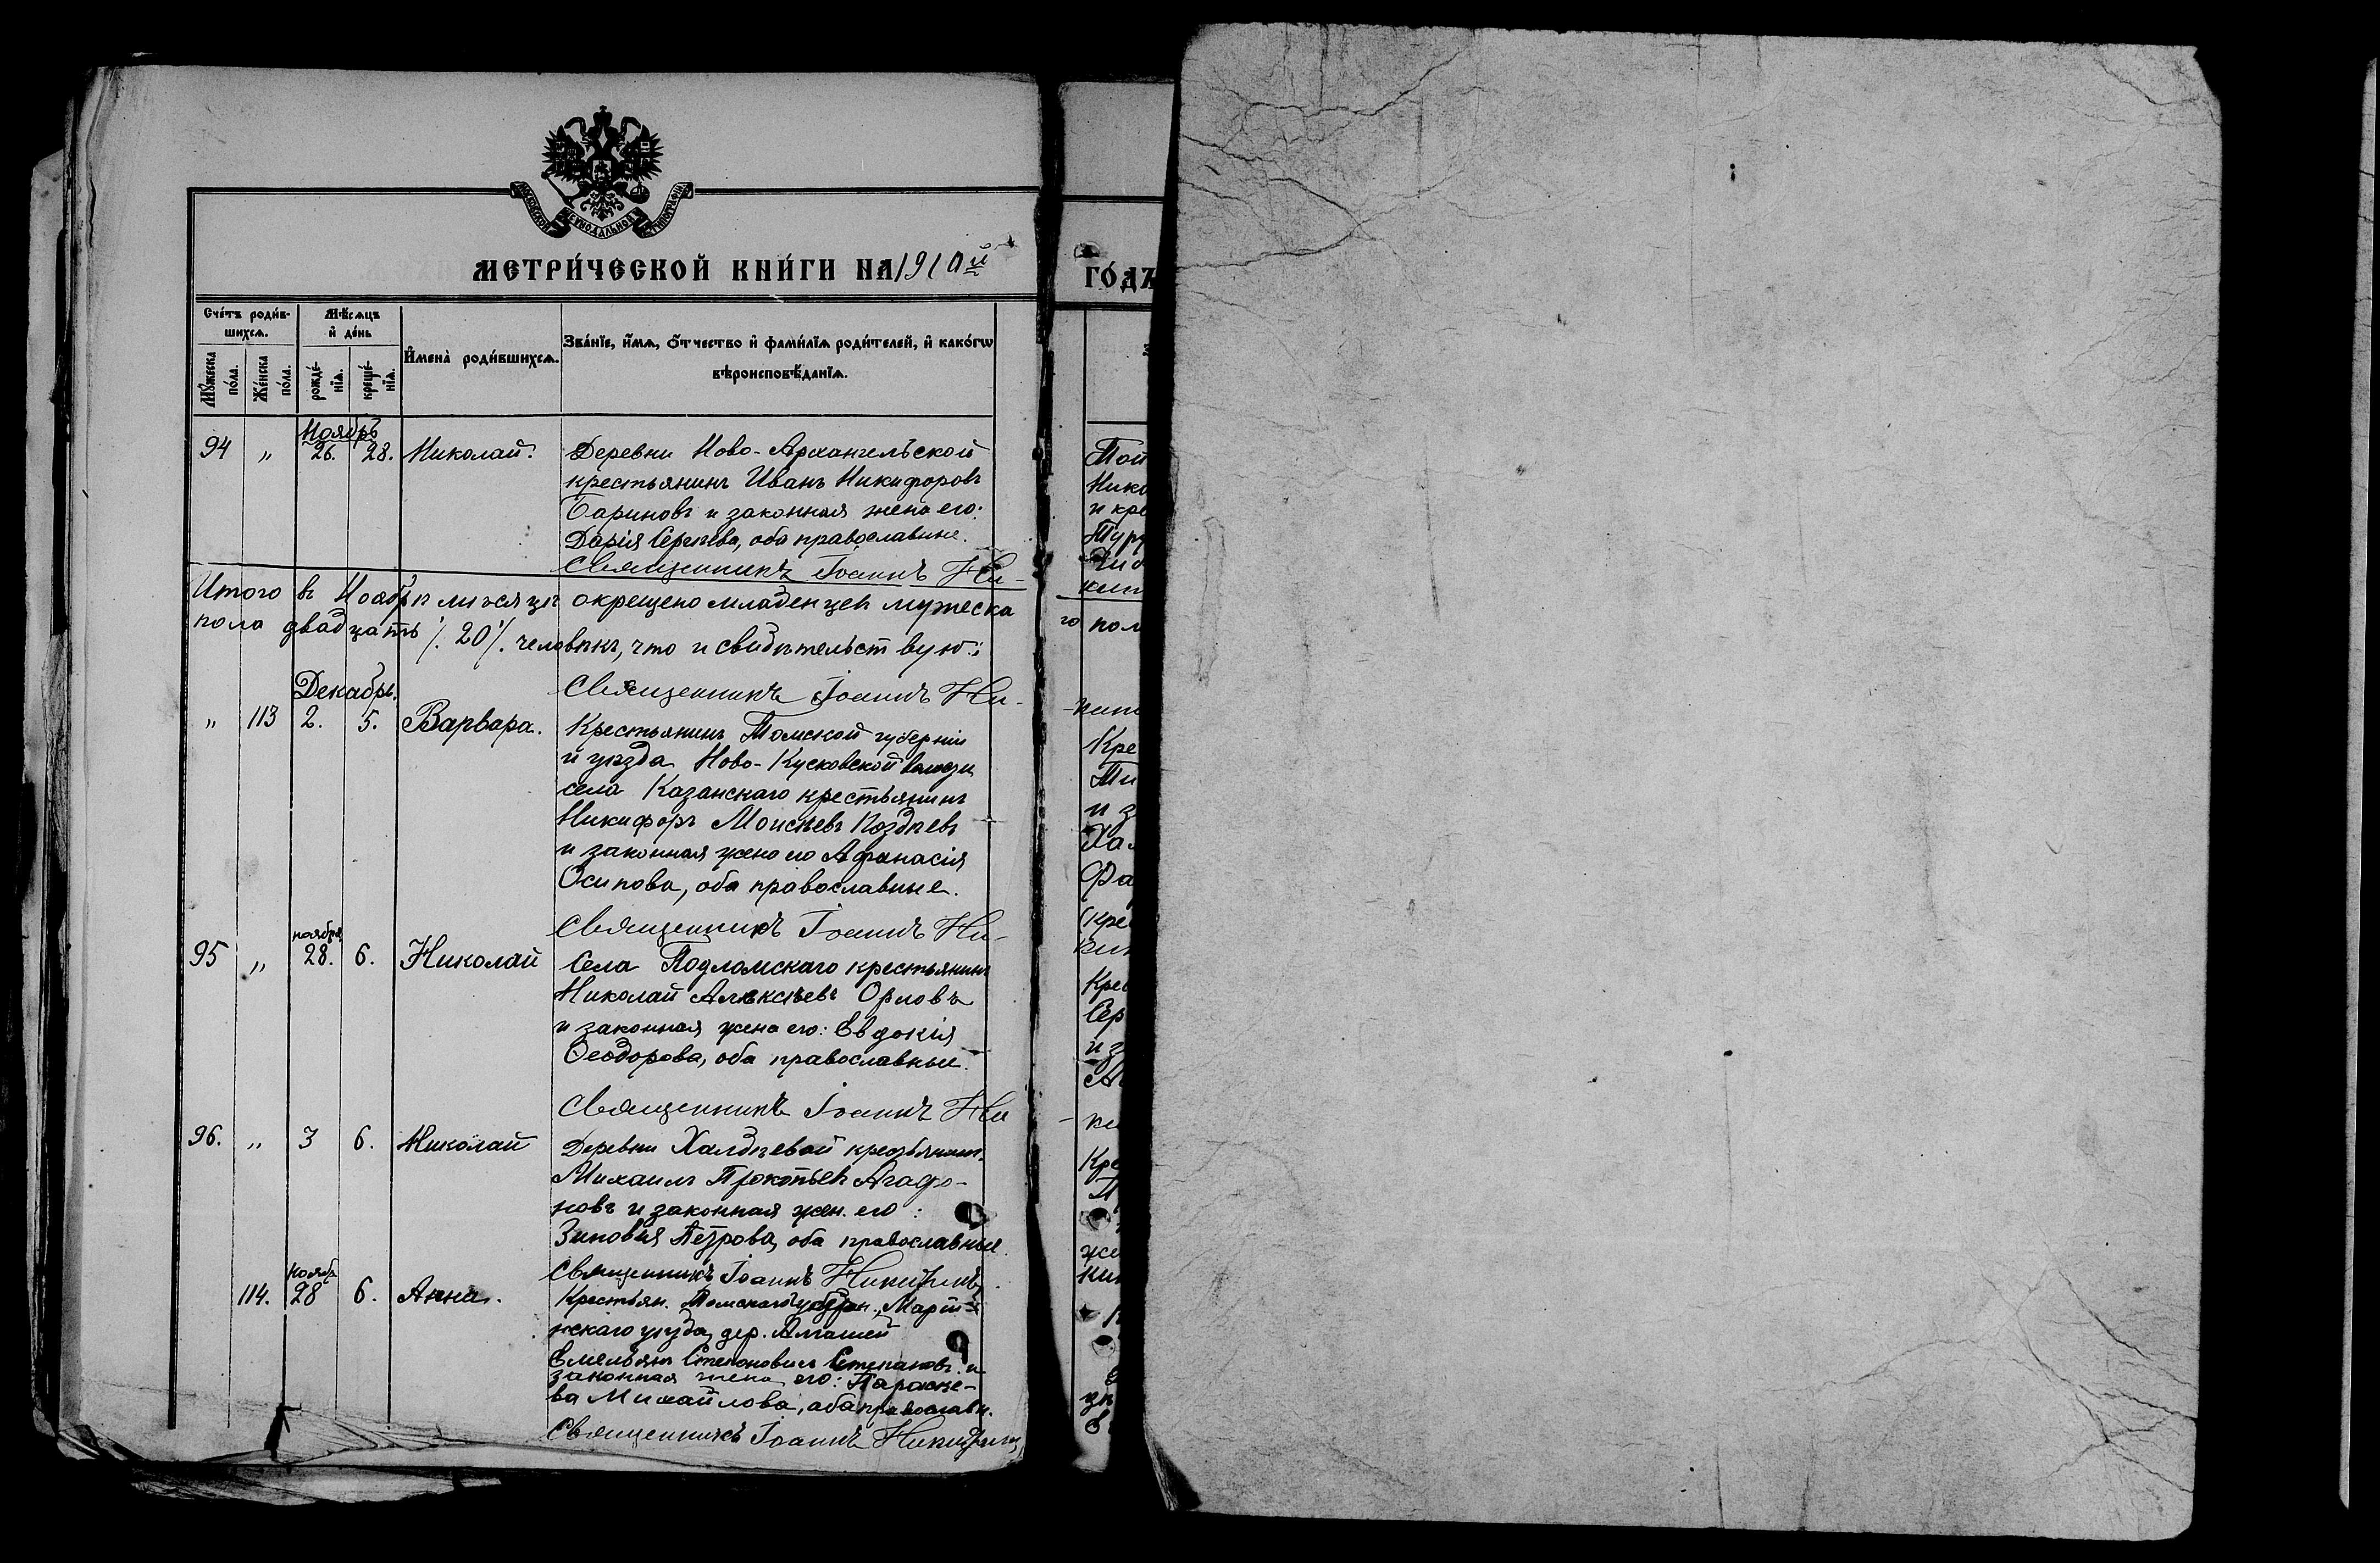 МОСКОВСКОЙ СѴНОДАЛЬНОЙ ТИПОГРАФІИ
МЕТРИ́ЧЕСКОЙ КНИ́ГИ НА 1910й
ГО́ДЪ
Сче́тъ роди́в-
шихсѧ.
Мꙋ́жеска
по́ла.
Же́нска
по́ла.
Мѣ́сѧцъ
и҆ де́нь
рожде́-
нїѧ.
креще́-
нїѧ.
И҆мена̀ роди́вшихсѧ.
Зва́нїе, и҆́мѧ, ѻ҆́тчество и҆ фами́лїѧ роди́телей, и҆ како́гѡ
вѣроисповѣ́данїѧ.
Ноябрь
94 " 26. 28. Николай.
Деревни Ново-Архангельской
крестьянинъ Иванъ Никифоровъ
Бариновъ и законная жена его:
Дарія Сергѣева, оба православные.
Священникъ Іоаннъ Ни-
Итого въ Ноябрѣ мѣсяцѣ окрещено младенцевъ мужеска
пола двадцать ∕. 20 ∕. человѣкъ, что и свидѣтельствую:
Священникъ Іоаннъ Ни-
Декабрь.
" 113 2. 5. Варвара.
Крестьянинъ Томской губерніи
и уѣзда Ново-Кусковской волости
села Казанскаго крестьянинъ
Никифоръ Моисѣевъ Поздѣевъ
и законная жена его Афанасія
Осипова, оба православные.
Священникъ Іоаннъ Ни-
ноября
95 " 28. 6. Николай
Села Подломскаго крестьянинъ
Николай Алексѣевъ Орловъ
и законная жена его: Евдокія
Ѳеодорова, оба православные.
Священникъ Іоаннъ Ни
96. " 3 6. Николай
Деревни Халдѣевой крестьянин.
Михаилъ Прокопьевъ Агафо-
новъ и законная жен. его:
Зиновія Петрова, оба православные
Священникъ Іоаннъ Никитинъ.
нояб
114. 28 6. Анна.
Крестьян. Томской губерн., Маріи-
нскаго уѣзда, дер.
Емельянъ Степановъ и
законная жена его: Параске-
ва Михайлова, оба православн.
Священникъ Іоаннъ Никитинъ
Той
Нико
и кре
Тур
го пол
Кре
Ти
и з
Ха
Фа
(кре
Крес
Сер
и з
Кре
М
же